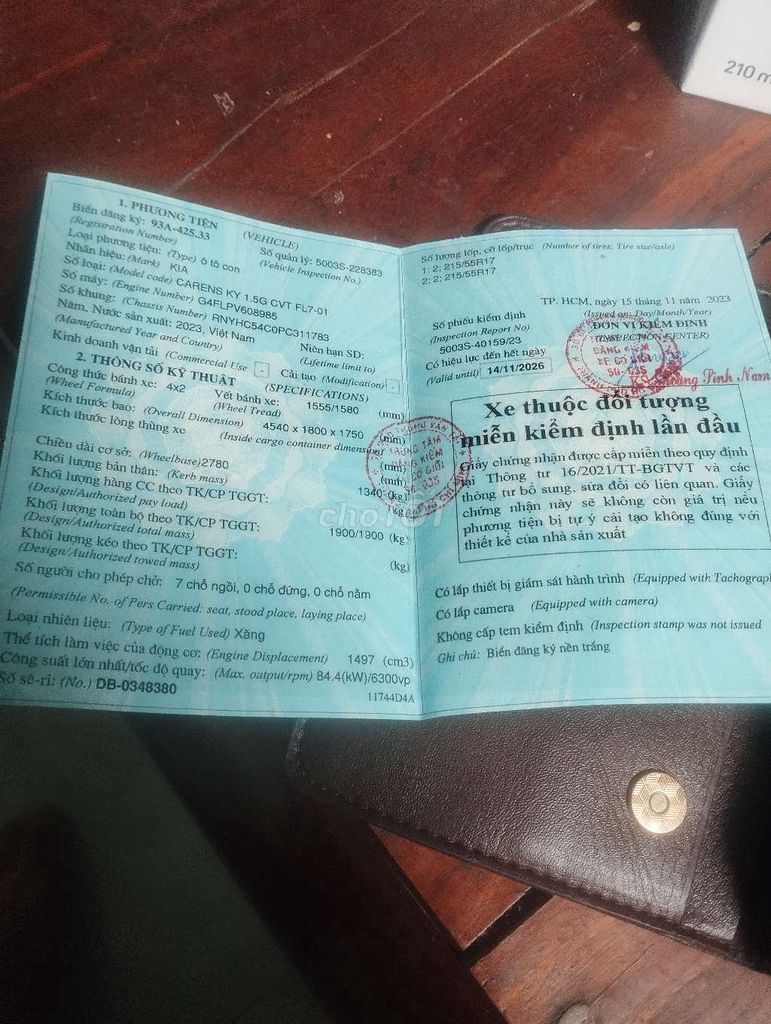 210 m
1. PHƯƠNG TIỆN (VEHICLE)
Biển đăng ký: 93A-425.33 Số quản lý: 5003S-228383
(Registration Number) (Vehicle Inspection No.)
Loại phương tiện: (Type) ô tô con
Nhãn hiệu: (Mark) KIA
Số loại: (Model code) CARENS KY 1.5G CVT FL7-01
Số máy: (Engine Number) G4FLPV608985
Số khung: (Chassis Number) RNYHC54C0PC311783
Năm, Nước sản xuất: 2023, Việt Nam Niên hạn SD:
(Manufactured Year and Country) (Lifetime limit to)
Kinh doanh vận tải (Commercial Use - Cải tạo (Modification) -
2. THÔNG SỐ KỸ THUẬT (SPECIFICATIONS)
Công thức bánh xe: 4x2 Vết bánh xe: 1555/1580 (mm)
(Wheel Formula) (Wheel Tread)
Kích thước bao: (Overall Dimension) 4540 x 1800 x 1750 (mm)
Kích thước lòng thùng xe (Inside cargo container dimension) (mm)
Chiều dài cơ sở: (Wheelbase) 2780 (mm)
Khối lượng bản thân: (Kerb mass) 1340 (kg)
Khối lượng hàng CC theo TK/CP TGGT: (kg)
(Design/Authorized pay load)
Khối lượng toàn bộ theo TK/CP TGGT: 1900/1900 (kg)
(Design/Authorized total mass)
Khối lượng kéo theo TK/CP TGGT: (kg)
(Design/Authorized towed mass)
Số người cho phép chở: 7 chỗ ngồi, 0 chỗ đứng, 0 chỗ nằm
(Permissible No. of Pers Carried: seat, stood place, laying place)
Loại nhiên liệu: (Type of Fuel Used) Xăng
Thể tích làm việc của động cơ: (Engine Displacement) 1497 (cm3)
Công suất lớn nhất/tốc độ quay: (Max. output/rpm) 84.4(kW)/6300vp
Số sê-ri: (No.) DB-0348380 11744D4A
Số lượng lốp, cỡ lốp/trục (Number of tires; Tire size/axle)
1: 2; 215/55R17
2: 2; 215/55R17
TP. HCM, ngày 15 tháng 11 năm 2023
(Issued on: Day/Month/Year)
Số phiếu kiểm định ĐƠN VỊ KIỂM ĐỊNH
(Inspection Report No) (INSPECTION CENTER)
5003S-40159/23
Có hiệu lực đến hết ngày
(Valid until) 14/11/2026
Xe thuộc đối tượng
miễn kiểm định lần đầu
Giấy chứng nhận được cấp miễn theo quy định
tại Thông tư 16/2021/TT-BGTVT và các
thông tư bổ sung, sửa đổi có liên quan. Giấy
chứng nhận này sẽ không còn giá trị nếu
phương tiện bị tự ý cải tạo không đúng với
thiết kế của nhà sản xuất
Có lắp thiết bị giám sát hành trình (Equipped with Tachograp
Có lắp camera (Equipped with camera)
Không cấp tem kiểm định (Inspection stamp was not issued
Ghi chú: Biển đăng ký nền trắng